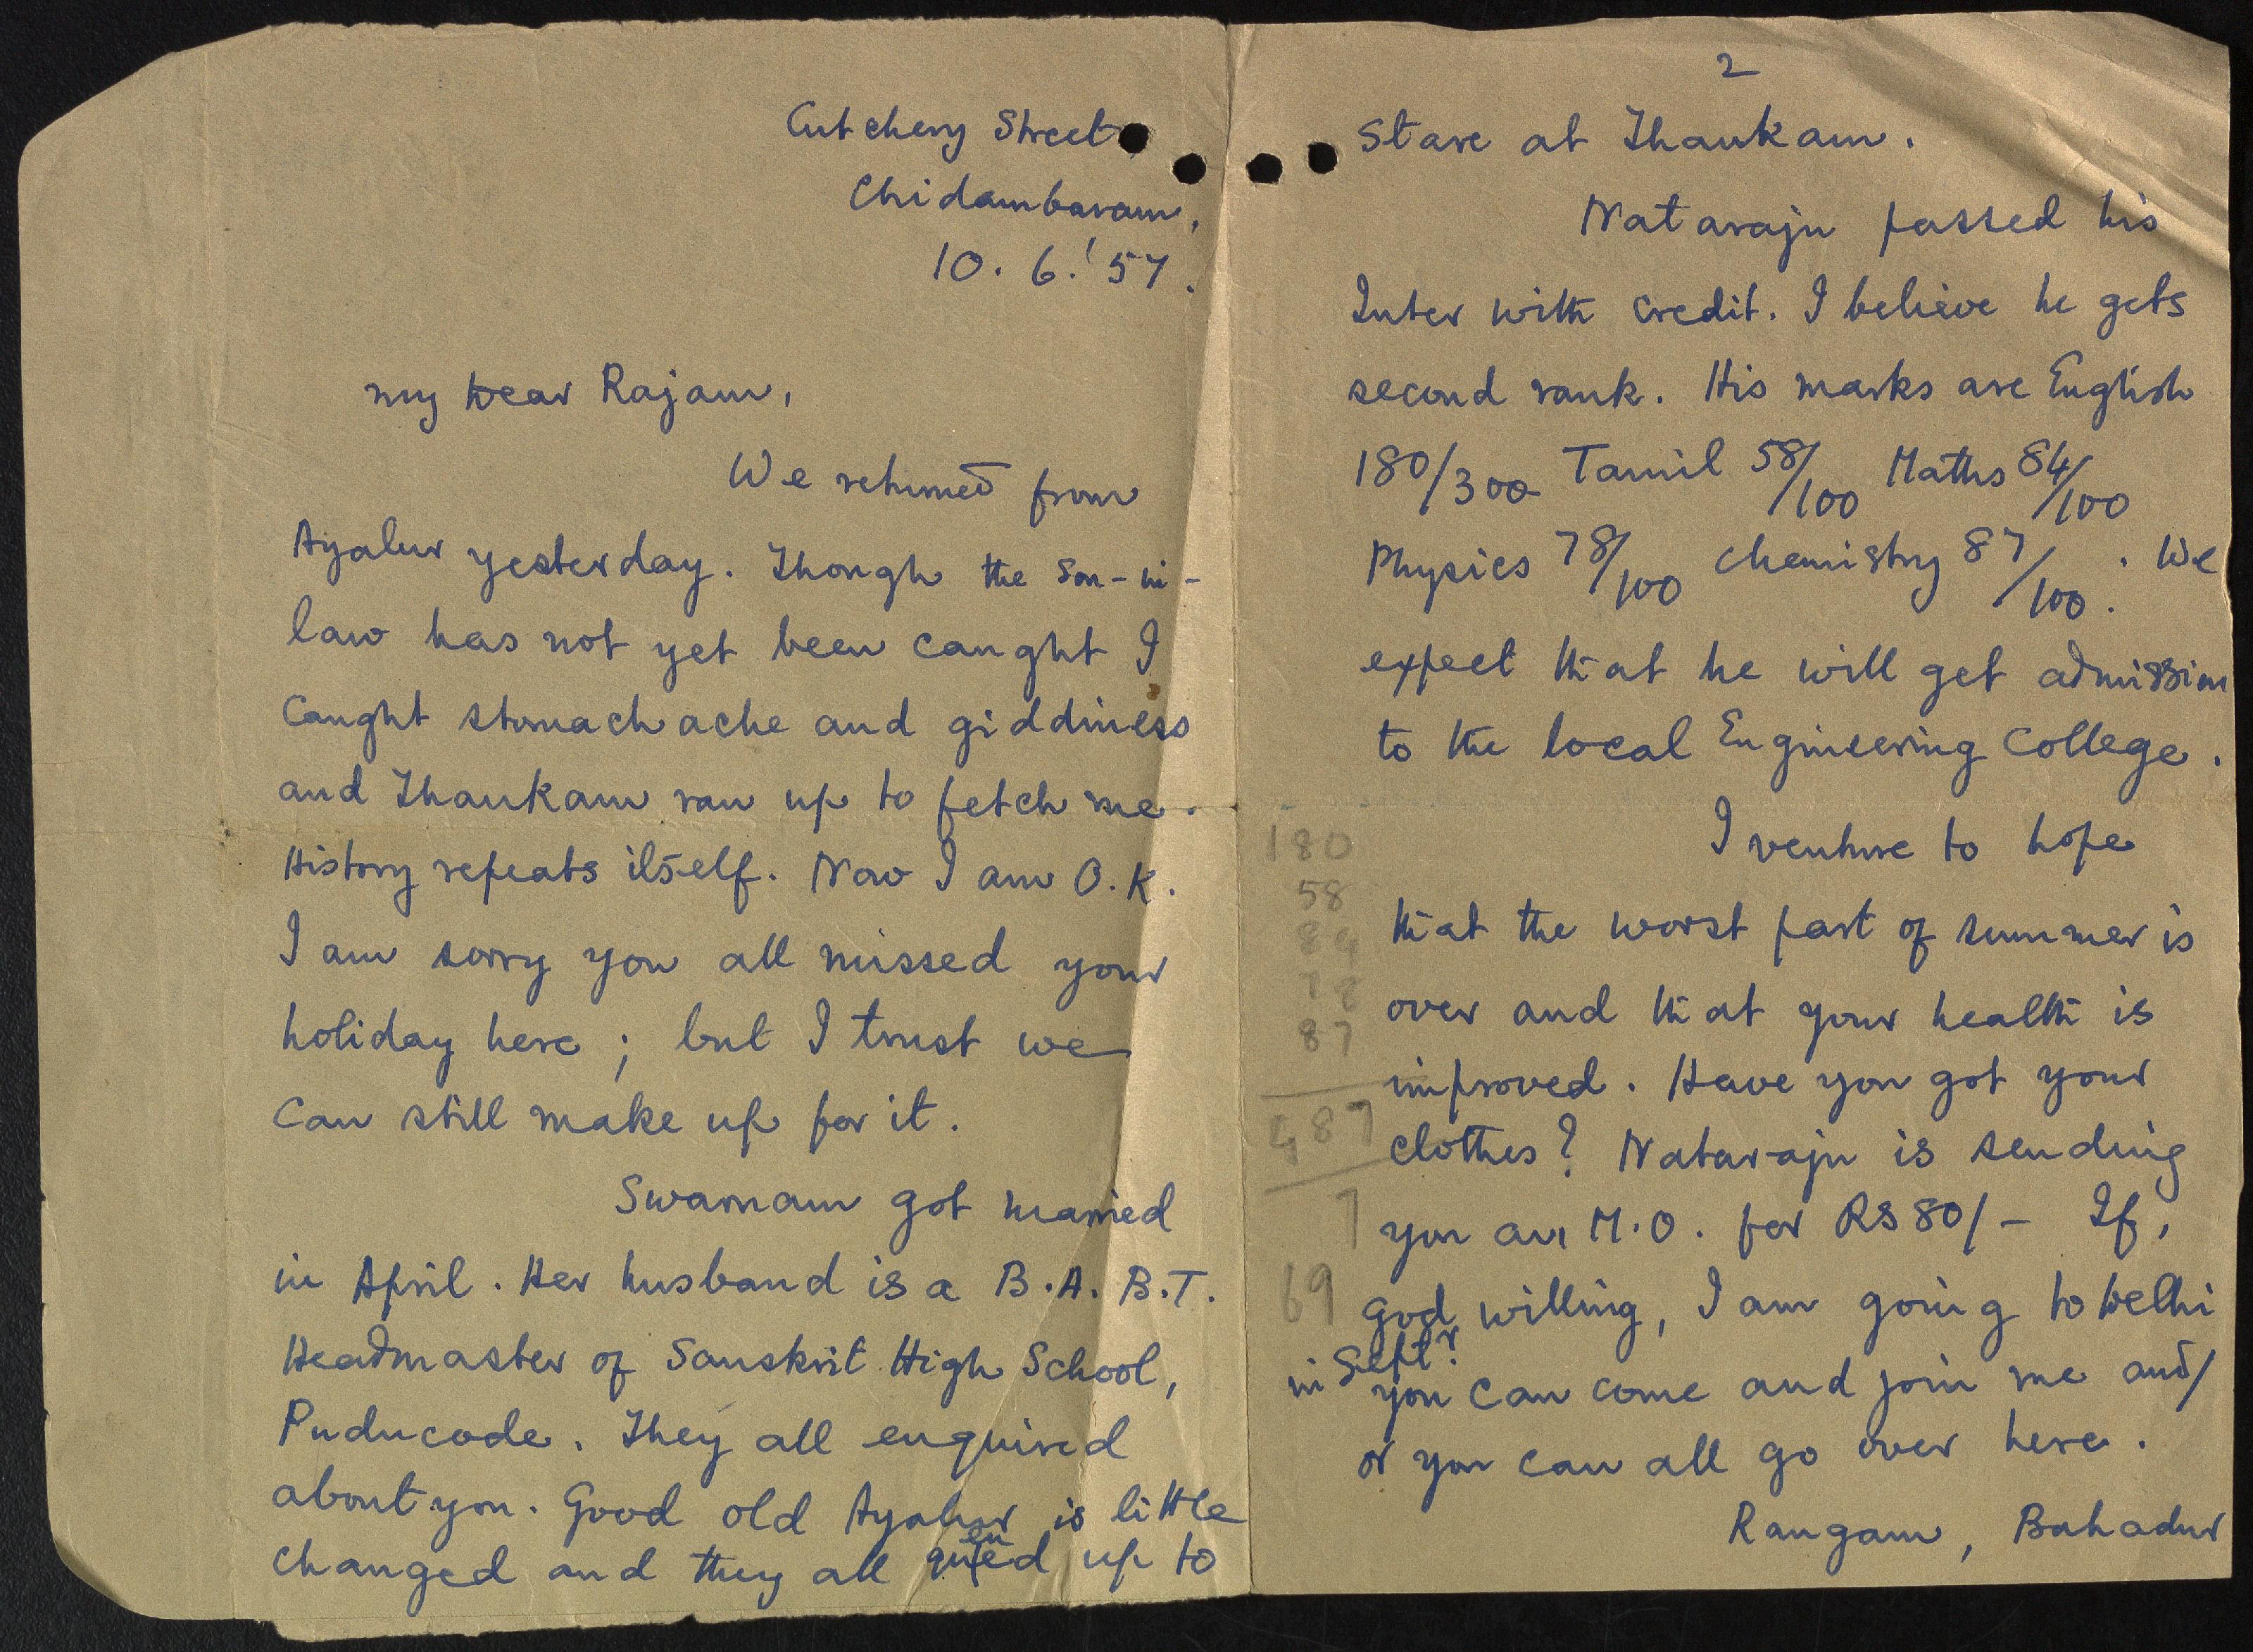 Cutchery Street,
Chidambaram,
10. 6. '57.
my Dear Rajam,
We returned from
Ayalur yesterday. Though the Son-in-
law has not yet been caught I
caught stomach ache and giddiness
and Thankam ran up to fetch me.
History repeats itself. Now I am O.K.
I am sorry you all missed your
holiday here; but I trust we
can still make up for it.
Swarnam got married
in April. Her husband is a B.A. B.T.
Headmaster of Sanskrit High School,
Puducode. They all enquired
about you. Good old Ayalur is little
changed and they all queued up to
2
Stare at Thankam.
Nataraju passed his
Inter with credit. I believe he gets
second rank. His marks are English
180/300 Tamil 58/100 Maths 84/100
Physics 78/100 Chemistry 87/100. We
expect that he will get admission
to the local Engineering College.
I venture to hope
that the worst part of summer is
over and that your health is
improved. Have you got your
clothes? Nataraju is sending
you an M.O. for RS 80/- If,
God willing, I am going to Delhi
in Septr.
you can come and join me and/
or you can all go over here.
Rangam, Bahadur
180
58
84
78
87
487
7
69